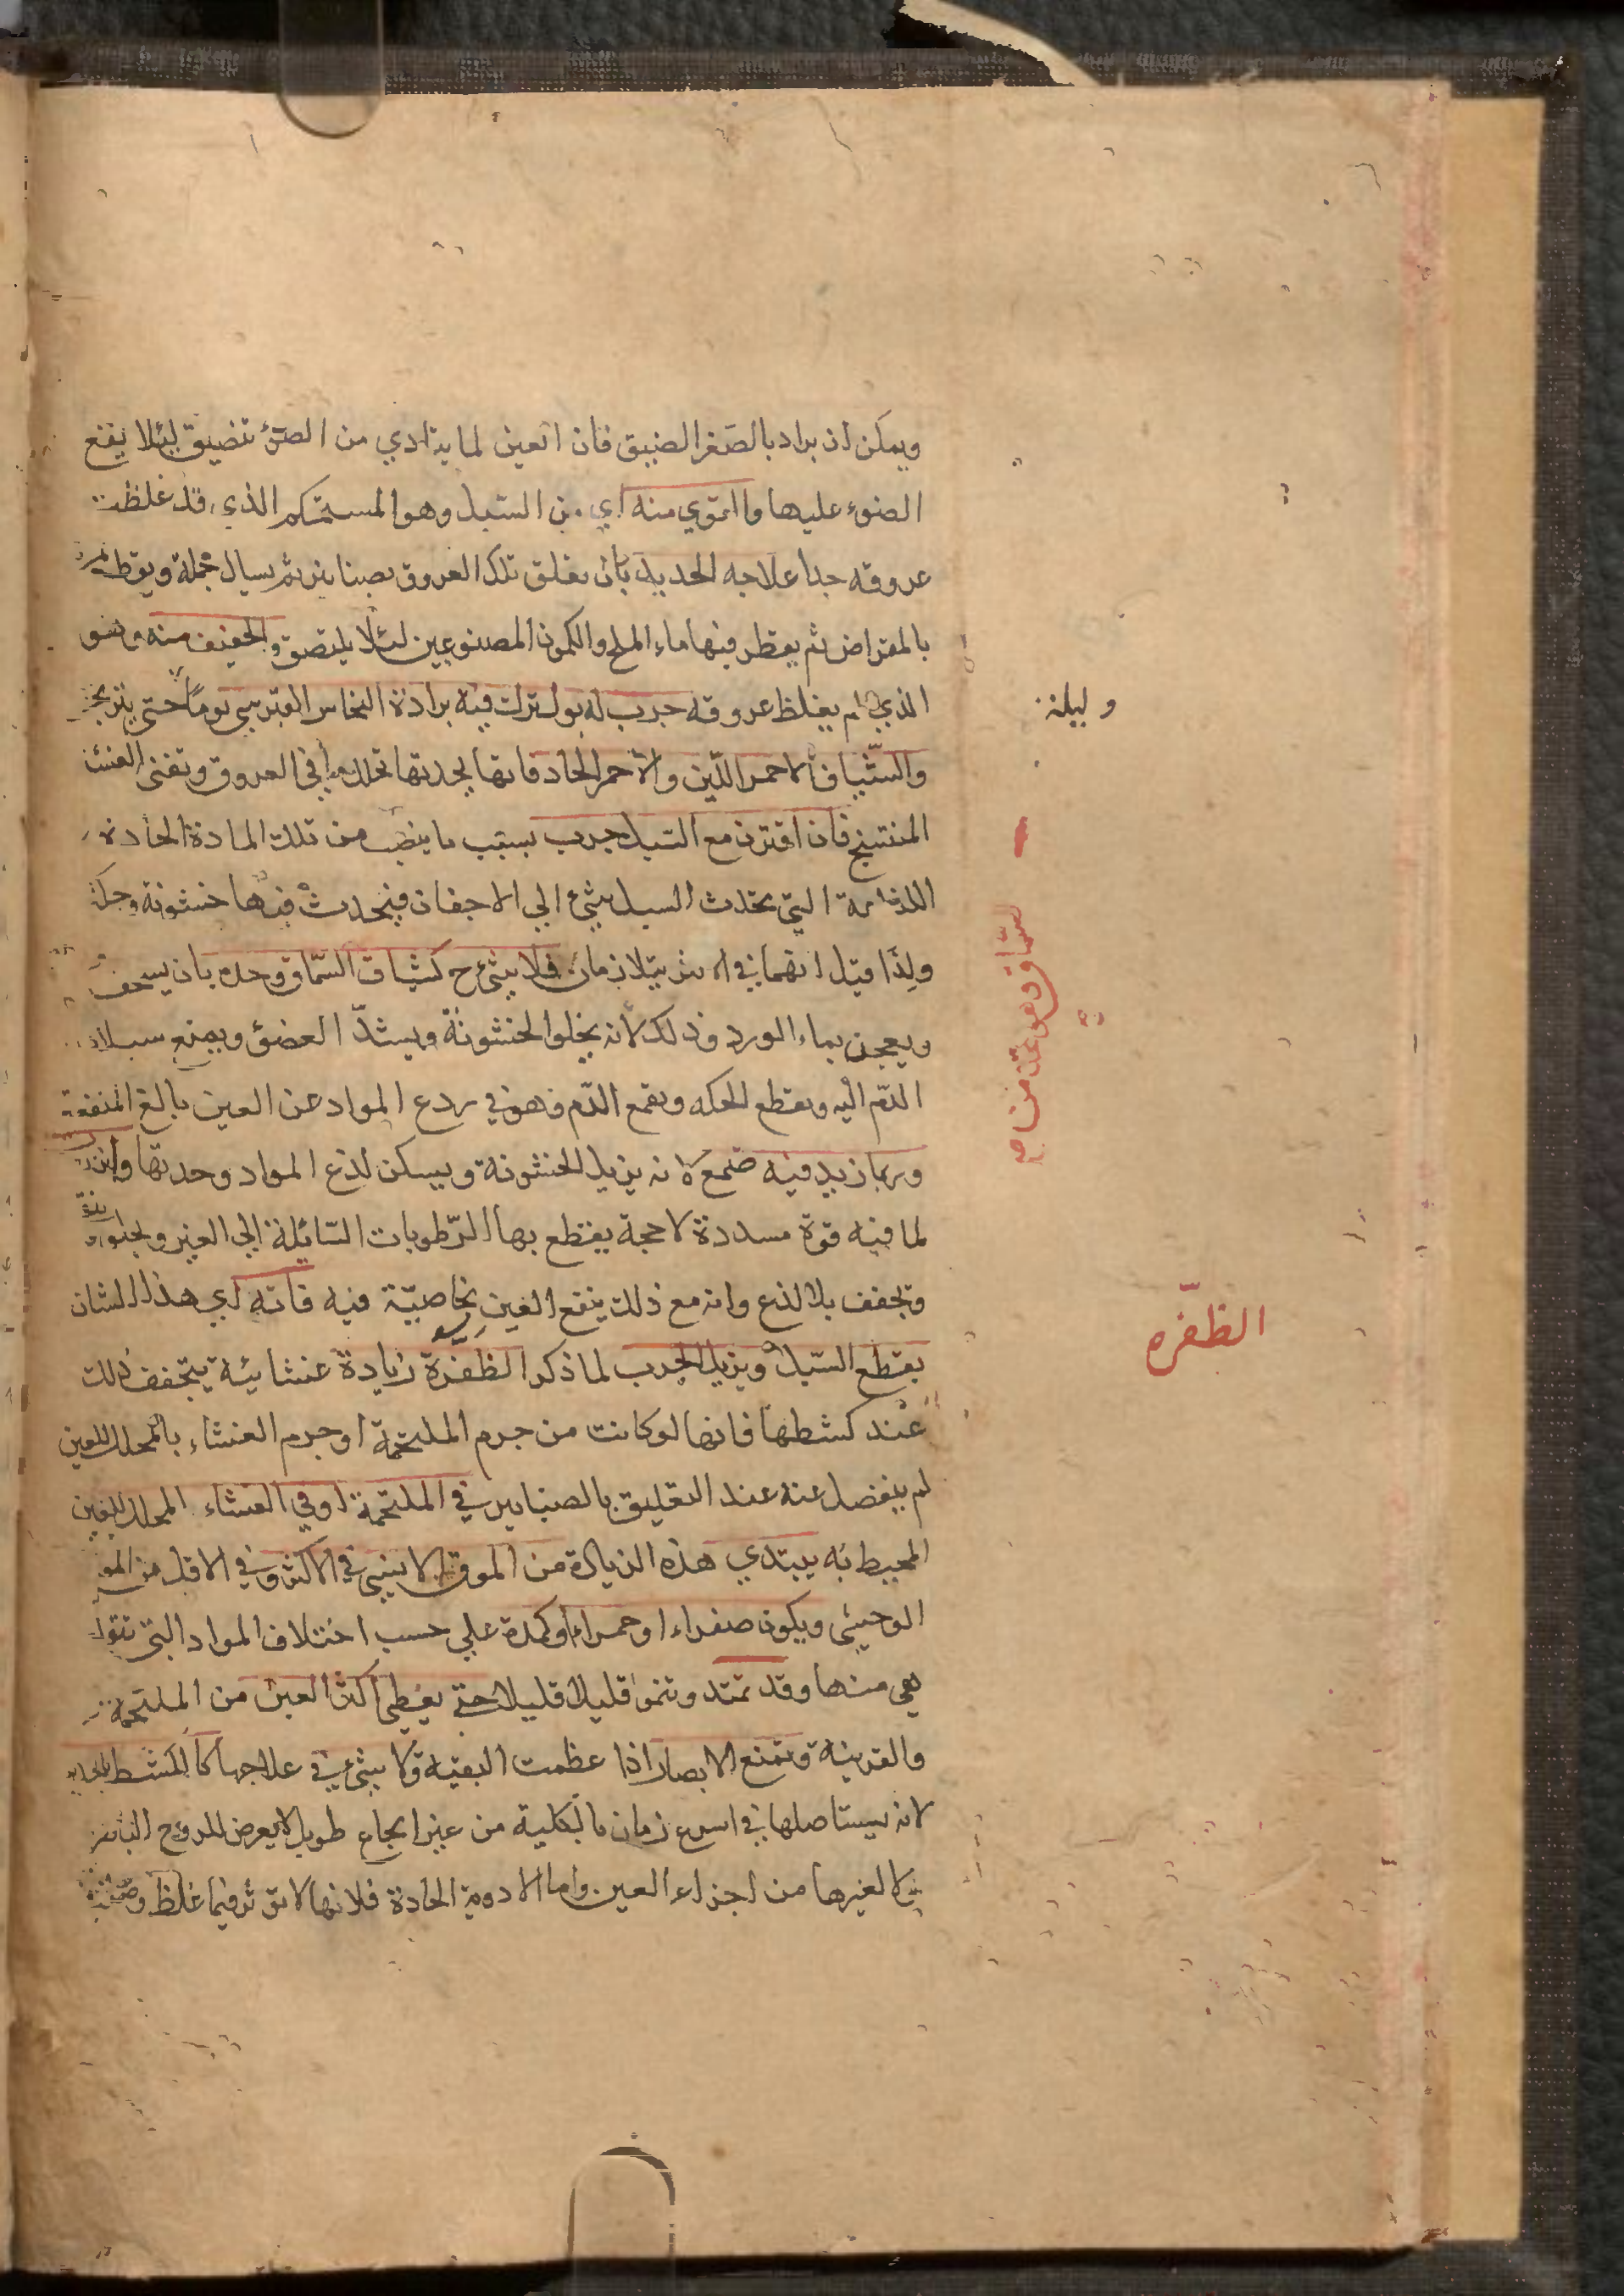 ويمكن ان يراد بالصغر الضيق فان العين لما يتاذي من الضوء تضيق ليلا يقع
الضوء عليها والقوي منه اي من السبل وهو المستحكم الذي قد غلظت
عروقه جدا علاجه الحديد بان يعلق تلك العروق بصنانير ثم يسال جملة ويقطع
بالمقراض ثم يقطر فيها ماء الملح والكمون المصنوعين لئلا يلتصق والخفيف منه وهو
الذي لم يغلظ عروقه جرب له بول تركت فيه برادة النحاس القبرسي يوما حتى يتزنجر
وليلة
والشياف الاحمر اللين والاحمر الحاد فانها لحدتها تحلل ما في العروق وتفني الغشا
المنتسج فان اقترن مع السبل جرب بسبب ما ينصب من تلك المادة الحادة
اللذاعة التي تحدث السبل بشيء الي الاجفان فيحدث فيها خشونة وحكة
ولذا قيل انهما في الاكثر يتلازمان فلا شيء ح كشياف السماق وحده بان يسحق
ويعجن بماء الورد وذلك لانه يجلوا الخشونة ويشد العضو ويمنع سيلان
الدم اليه ويقطع الحكه ويقمع الدم وهو في ردع المواد عن العين بالغ المنفعة
وربما زيد فيه صمغ لانه يزيل الخشونة ويسكن لذع المواد وحدتها
لما فيه قوة مسددة لاحجة يقطع بها الرطوبات السائلة الي العين
وتجفف بلا لذع وانه مع ذلك ينفع العين بخاصية فيه فانه اي هذا الشان
يقطع السبل ويزيل الجرب لما ذكر الظفرة زيادة غشائية يتخفف ذلك
الظفره
عند كشطها فانها لو كانت من جرم الملتحمة او جرم الغشاء المجلل للعين
لم ينفصل عنه عند التعليق بالصنانير في الملتحمة او في الغشاء المجلل للعين
المحيط به يبتدي هذه الزيادة من الموق الانسي في الاكثر وفي الاقل من الموق
الوحشي ويكون صفراء او حمراء او كمدة علي حسب اختلاف المواد التي تتولد
هي منها وقد تمتد وتنموا قليلا قليلا حتي يغطي اكثر العين من الملتحمة
والقرنية وتمنع الابصار اذا عظمت البقية ولا شيء في علاجها كالكشط بالحديد
لانه يستاصلها في اسرع زمان بالكلية من غير ايجاع طويل لا يعرض للروح الباصر
ولا لغيرها من اجزاء العين واما الادوية الحادة فلانها لا تؤثر فيما غلظ